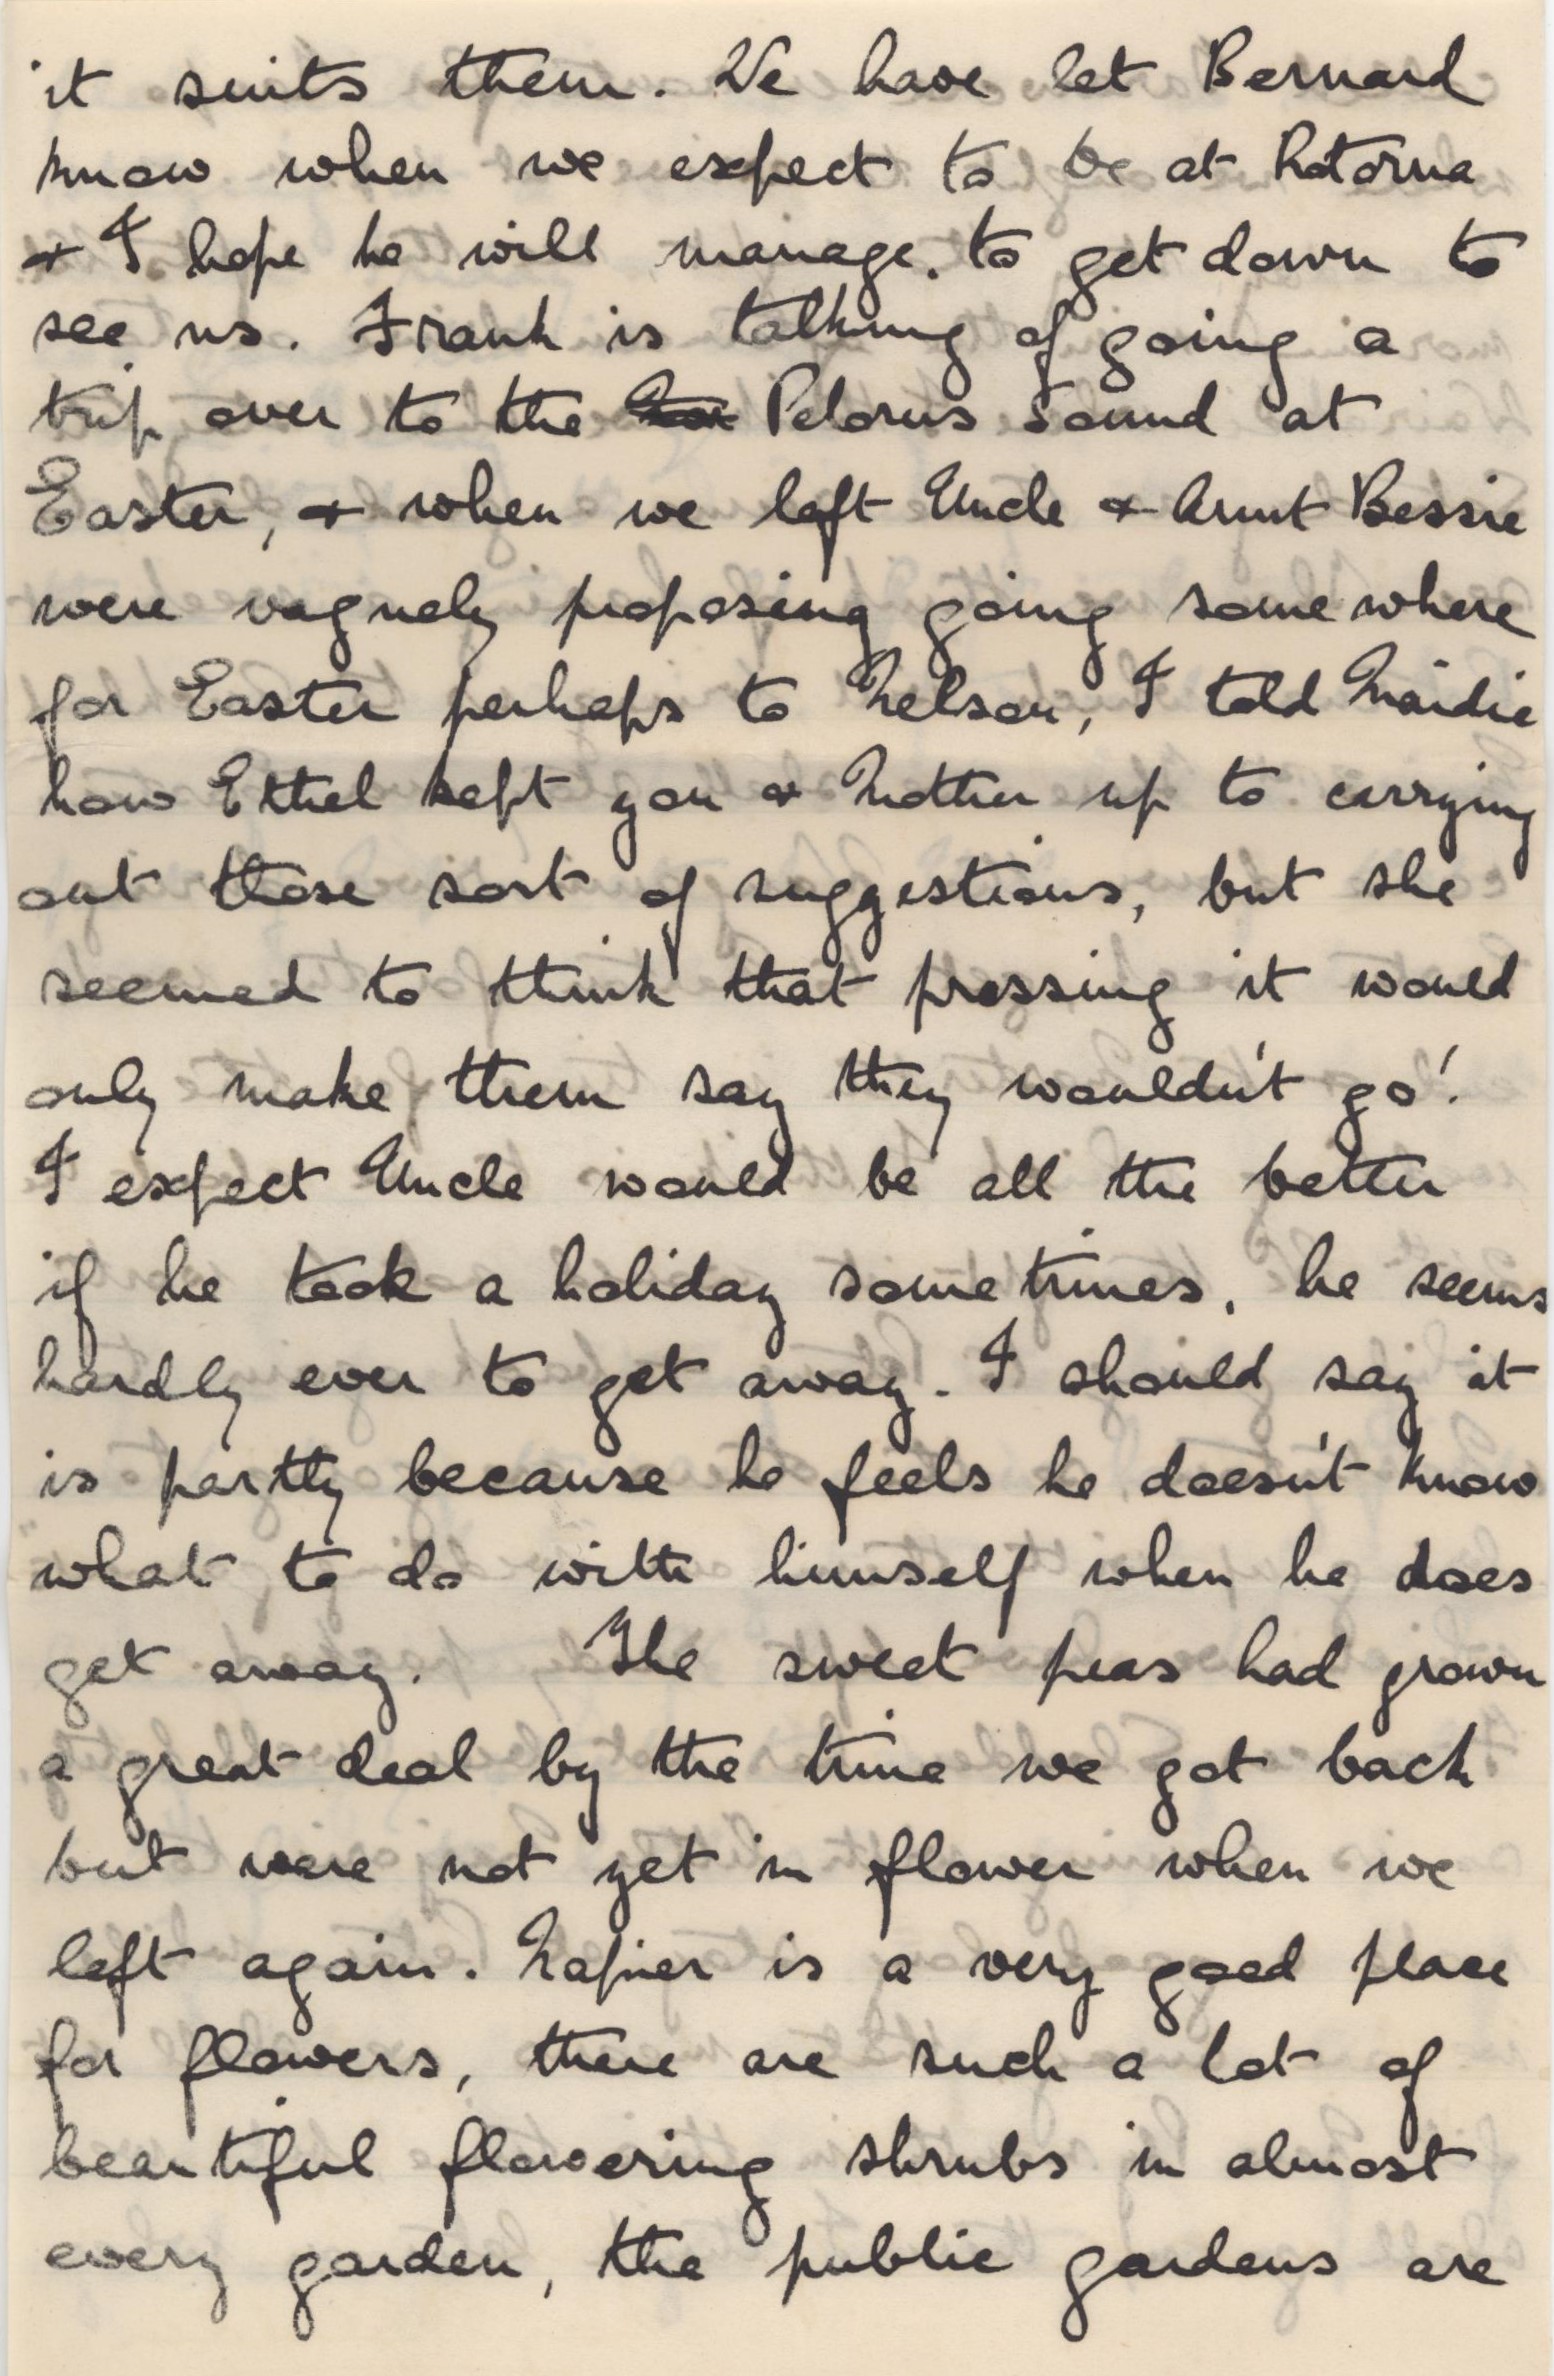 it suits them. We have let Bernard
know when we expect to be at Rotorua
+ I hope he will manage. to get down to
see us. Frank is talking of going a
trip over to the Pelorus Sound at
Easter, + when we left Uncle + Aunt Bessie
were vaguely proposing going somewhere
for Easter perhaps to Nelson, I told Maidie
how Ethel kept you + Mother up to carrying
out those sort of suggestions, but she
seemed to think that pressing it would
only make them say they wouldn't go!
I expect Uncle would be all the better
if he took a holiday sometimes, he seems
hardly ever to get away. I should say it
is partly because he feels he doesn't know
what to do with himself when he does
get away. The sweet peas had grown
a great deal by the time we got back
but were not yet in flower when we
left again. Napier is a very good place
for flowers, there are such a lot of
beautiful flowering shrubs in almost
every garden, the public gardens are